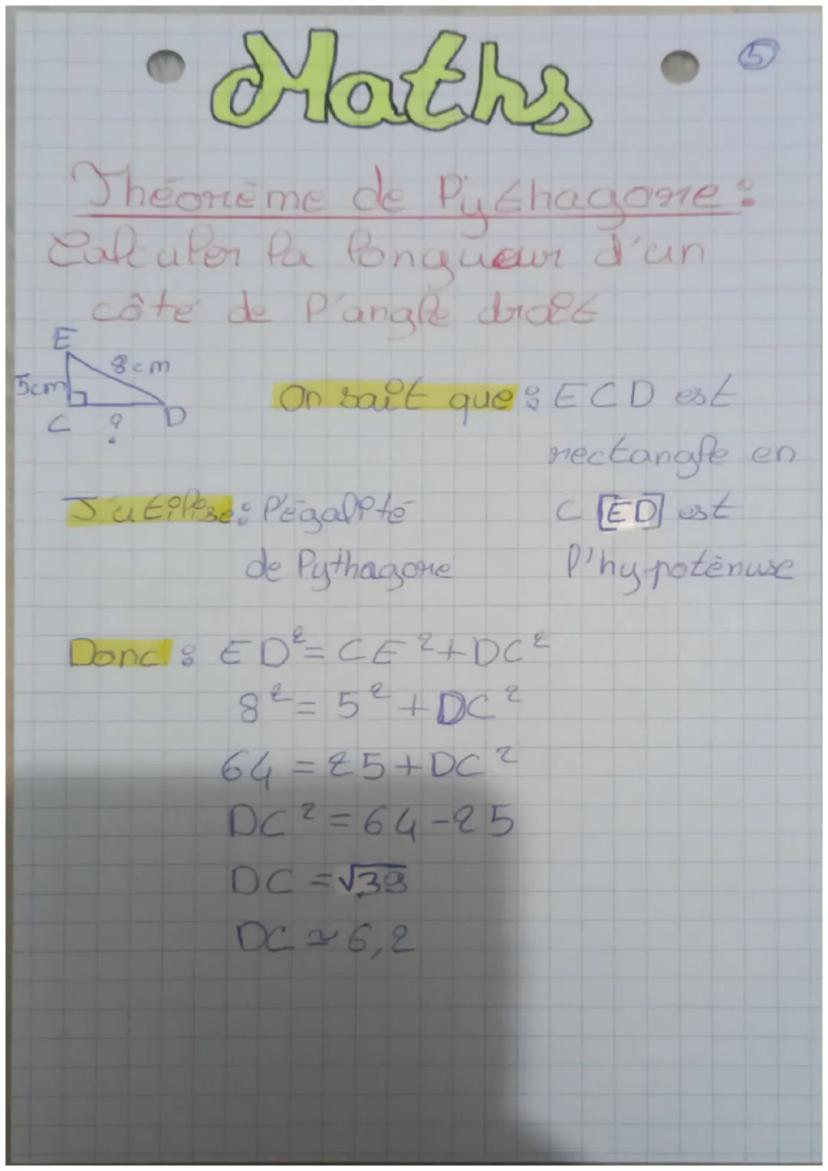 Maths
5
Théorème de Pythagore :
Calculer la longueur d'un
côté de l'angle droit
E
8cm
5cm
C ? D
On sait que : ECD est
rectangle en
C [ED] est
l'hypoténuse
J'utilise : l'égalité
de Pythagore
Donc : ED² = CE² + DC²
8² = 5² + DC²
64 = 25 + DC²
DC² = 64 - 25
DC = √39
DC ≃ 6,2